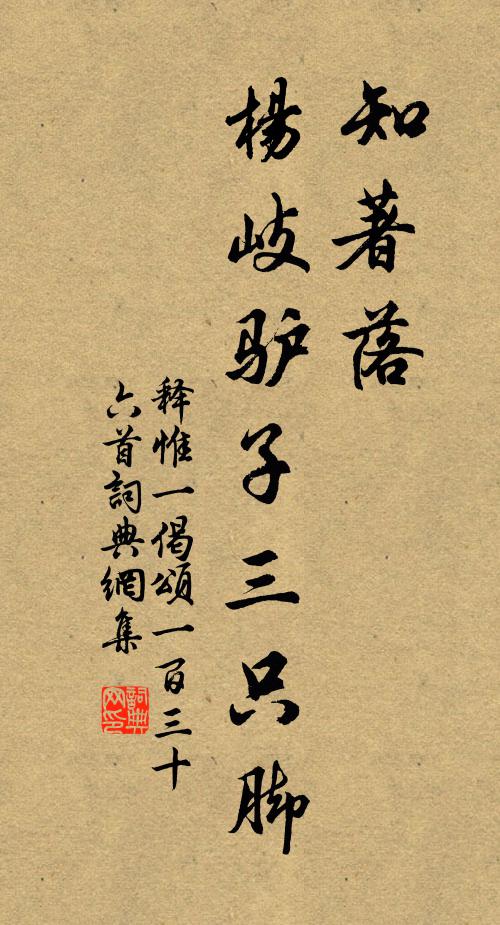 知著落
楊岐驴子三只脚
释惟一偈頌一百三十
六首詞典網集
詞典网印